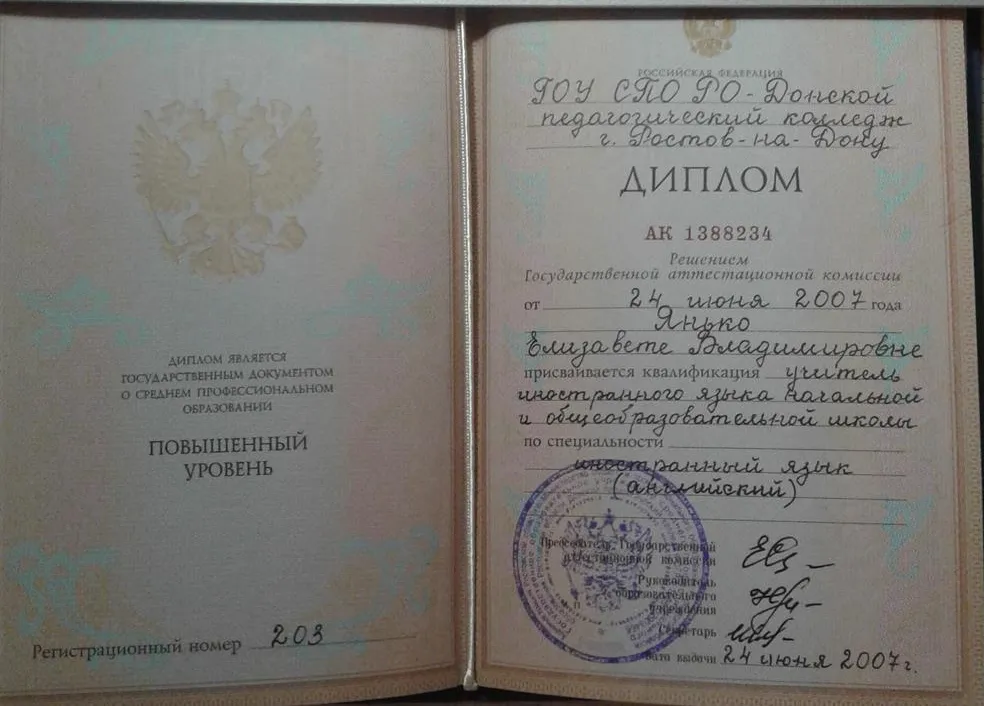 ДИПЛОМ ЯВЛЯЕТСЯ
ГОСУДАРСТВЕННЫМ ДОКУМЕНТОМ
О СРЕДНЕМ ПРОФЕССИОНАЛЬНОМ
ОБРАЗОВАНИИ
ПОВЫШЕННЫЙ
УРОВЕНЬ
Регистрационный номер 203
РОССИЙСКАЯ ФЕДЕРАЦИЯ
ГОУ СПО РО-Донской
педагогический колледж
г. Ростов-на-Дону
ДИПЛОМ
АК 1388234
Решением
Государственной аттестационной комиссии
от 24 июня 2007 года
Янько
Елизавете Владимировне
присваивается квалификация учитель
иностранного языка начальной
и общеобразовательной школы
по специальности
иностранный язык
(английский)
Председатель Государственной
аттестационной комиссии
Руководитель
образовательного
учреждения
Секретарь
Дата выдачи 24 июня 2007г.